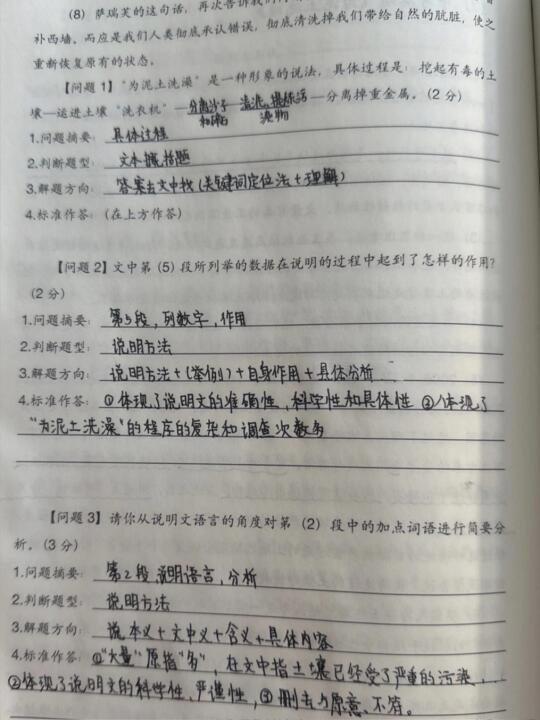 (8) 萨瑞芙的这句话，再次告诉我们
补西墙。而应是我们人类彻底承认错误，彻底清洗掉我们带给自然的肮脏，使之
重新恢复原有的状态。
【问题1】"为泥土洗澡"是一种形象的说法，具体过程是：挖起有毒的土
壤—运进土壤"洗衣机"—分离沙子 清洗，提炼污—分离掉重金属。(2分)
染物
1.问题摘要：具体过程
2.判断题型：文本概括题
3.解题方向：答案去文中找(关键词定位法+理解)
4.标准作答：(在上方作答)
【问题2】文中第(5)段所列举的数据在说明的过程中起到了怎样的作用？
(2分)
1.问题摘要：第5段，列数字，作用
2.判断题型：说明方法
3.解题方向：说明方法+(举例)+自身作用+具体分析
4.标准作答：①体现了说明文的准确性，科学性和具体性 ②体现了
"为泥土洗澡"的程序的复杂和调查次数多
【问题3】请你从说明文语言的角度对第(2)段中的加点词语进行简要分
析。(3分)
1.问题摘要：第2段，说明语言，分析
2.判断题型：说明方法
3.解题方向：说本义+文中义+含义+具体内容
4.标准作答：①"大量"原指"多"，在文中指土壤已经受了严重的污染，
②体现了说明文的科学性、严谨性，③删去与原意不符。